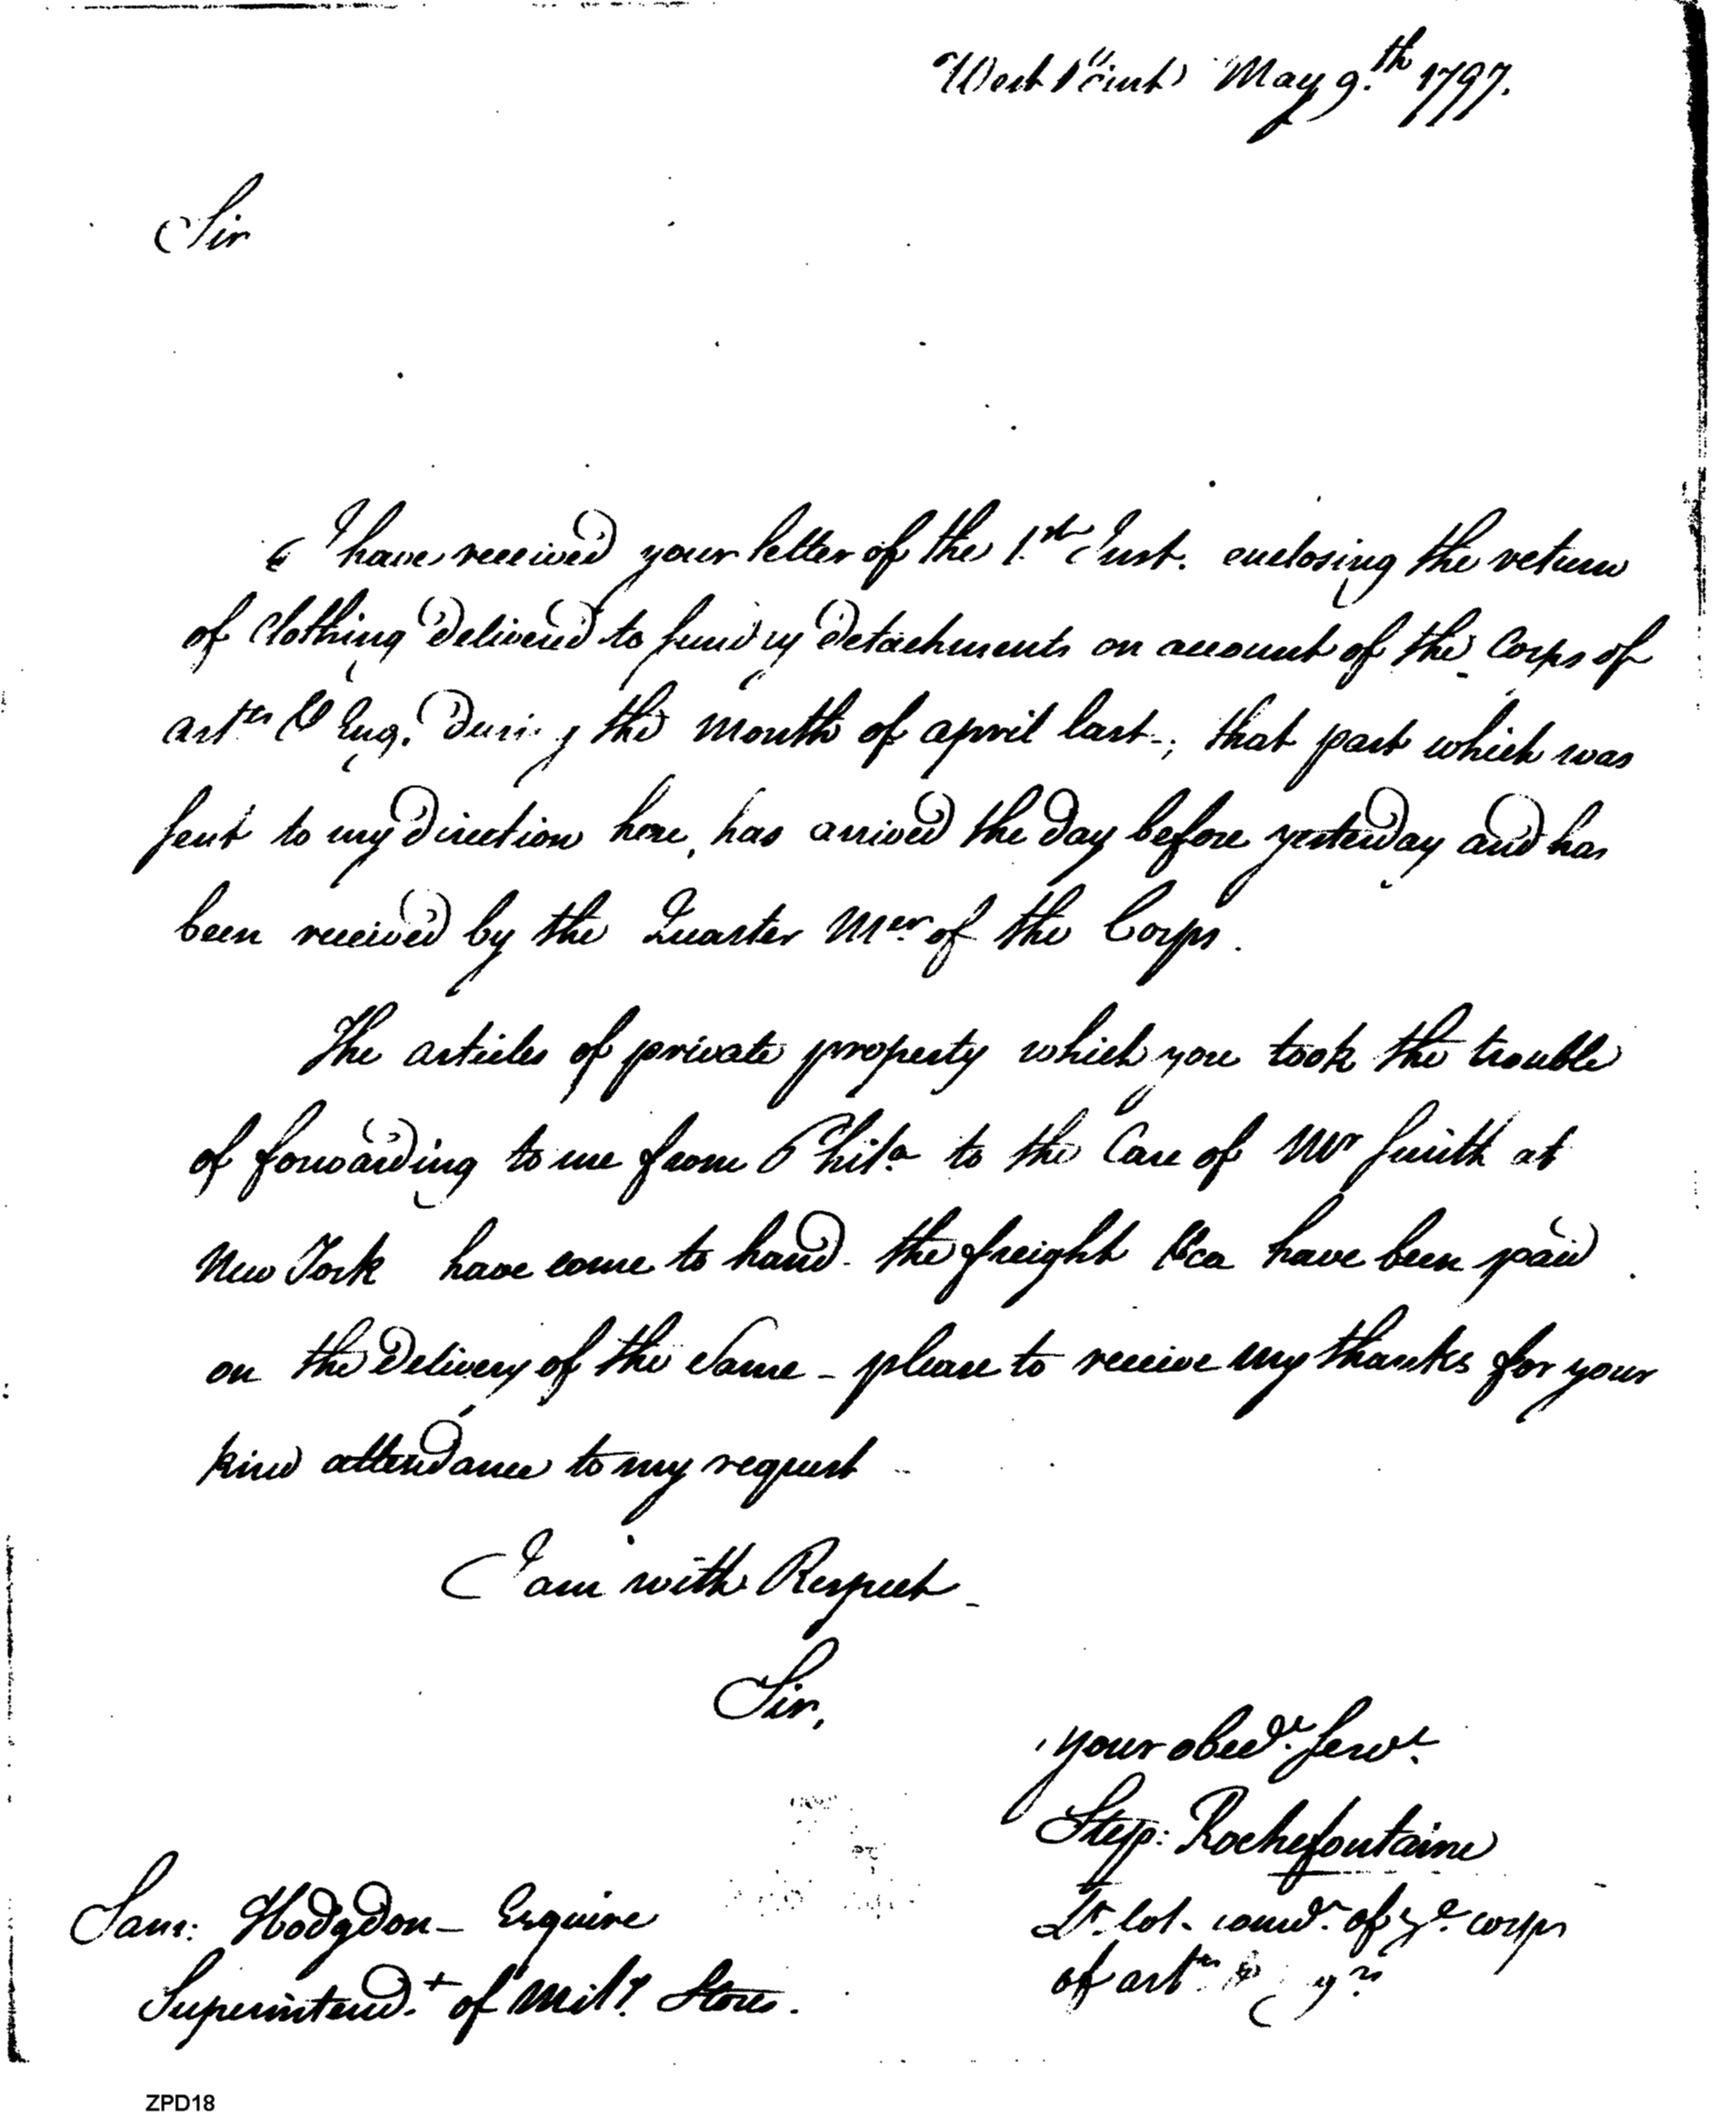 West Point May 9.th 1797.
Sir
I have received your letter of the 1.st Inst. enclosing the return
of Clothing delivered to sundry detachments on account of the Corps of
art.rs & Eng. during the month of april last-, that part which was
sent to my direction here, has arrived the day before yesterday and has
been received by the Quarter Mer. of the Corps.
The articles of private property which you took the trouble
of forwarding to me from Phila. to the Care of Mr Smith at
New York have come to hand - the freight &ca have been paid
on the delivery of the Same - please to receive my thanks for your
kind attendance to my request -
I am with Respect -
Sir,
your obed.t serv.t
Step: Rochefontaine
Lt. Col. comd.r of ye. corps
of art.rs
Sam: Hodgdon - Esquire
Superintend.t of Mily. Stores.
ZPD18